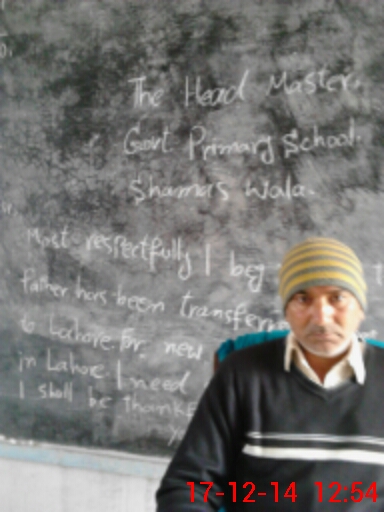 The Head Master.
Govt Primary School.
Shamas Wala.
Most respectfully I beg
father has been transferr
to Lachore. For new
in Lahore. I need
I shall be thanke
17-12-14 12:54